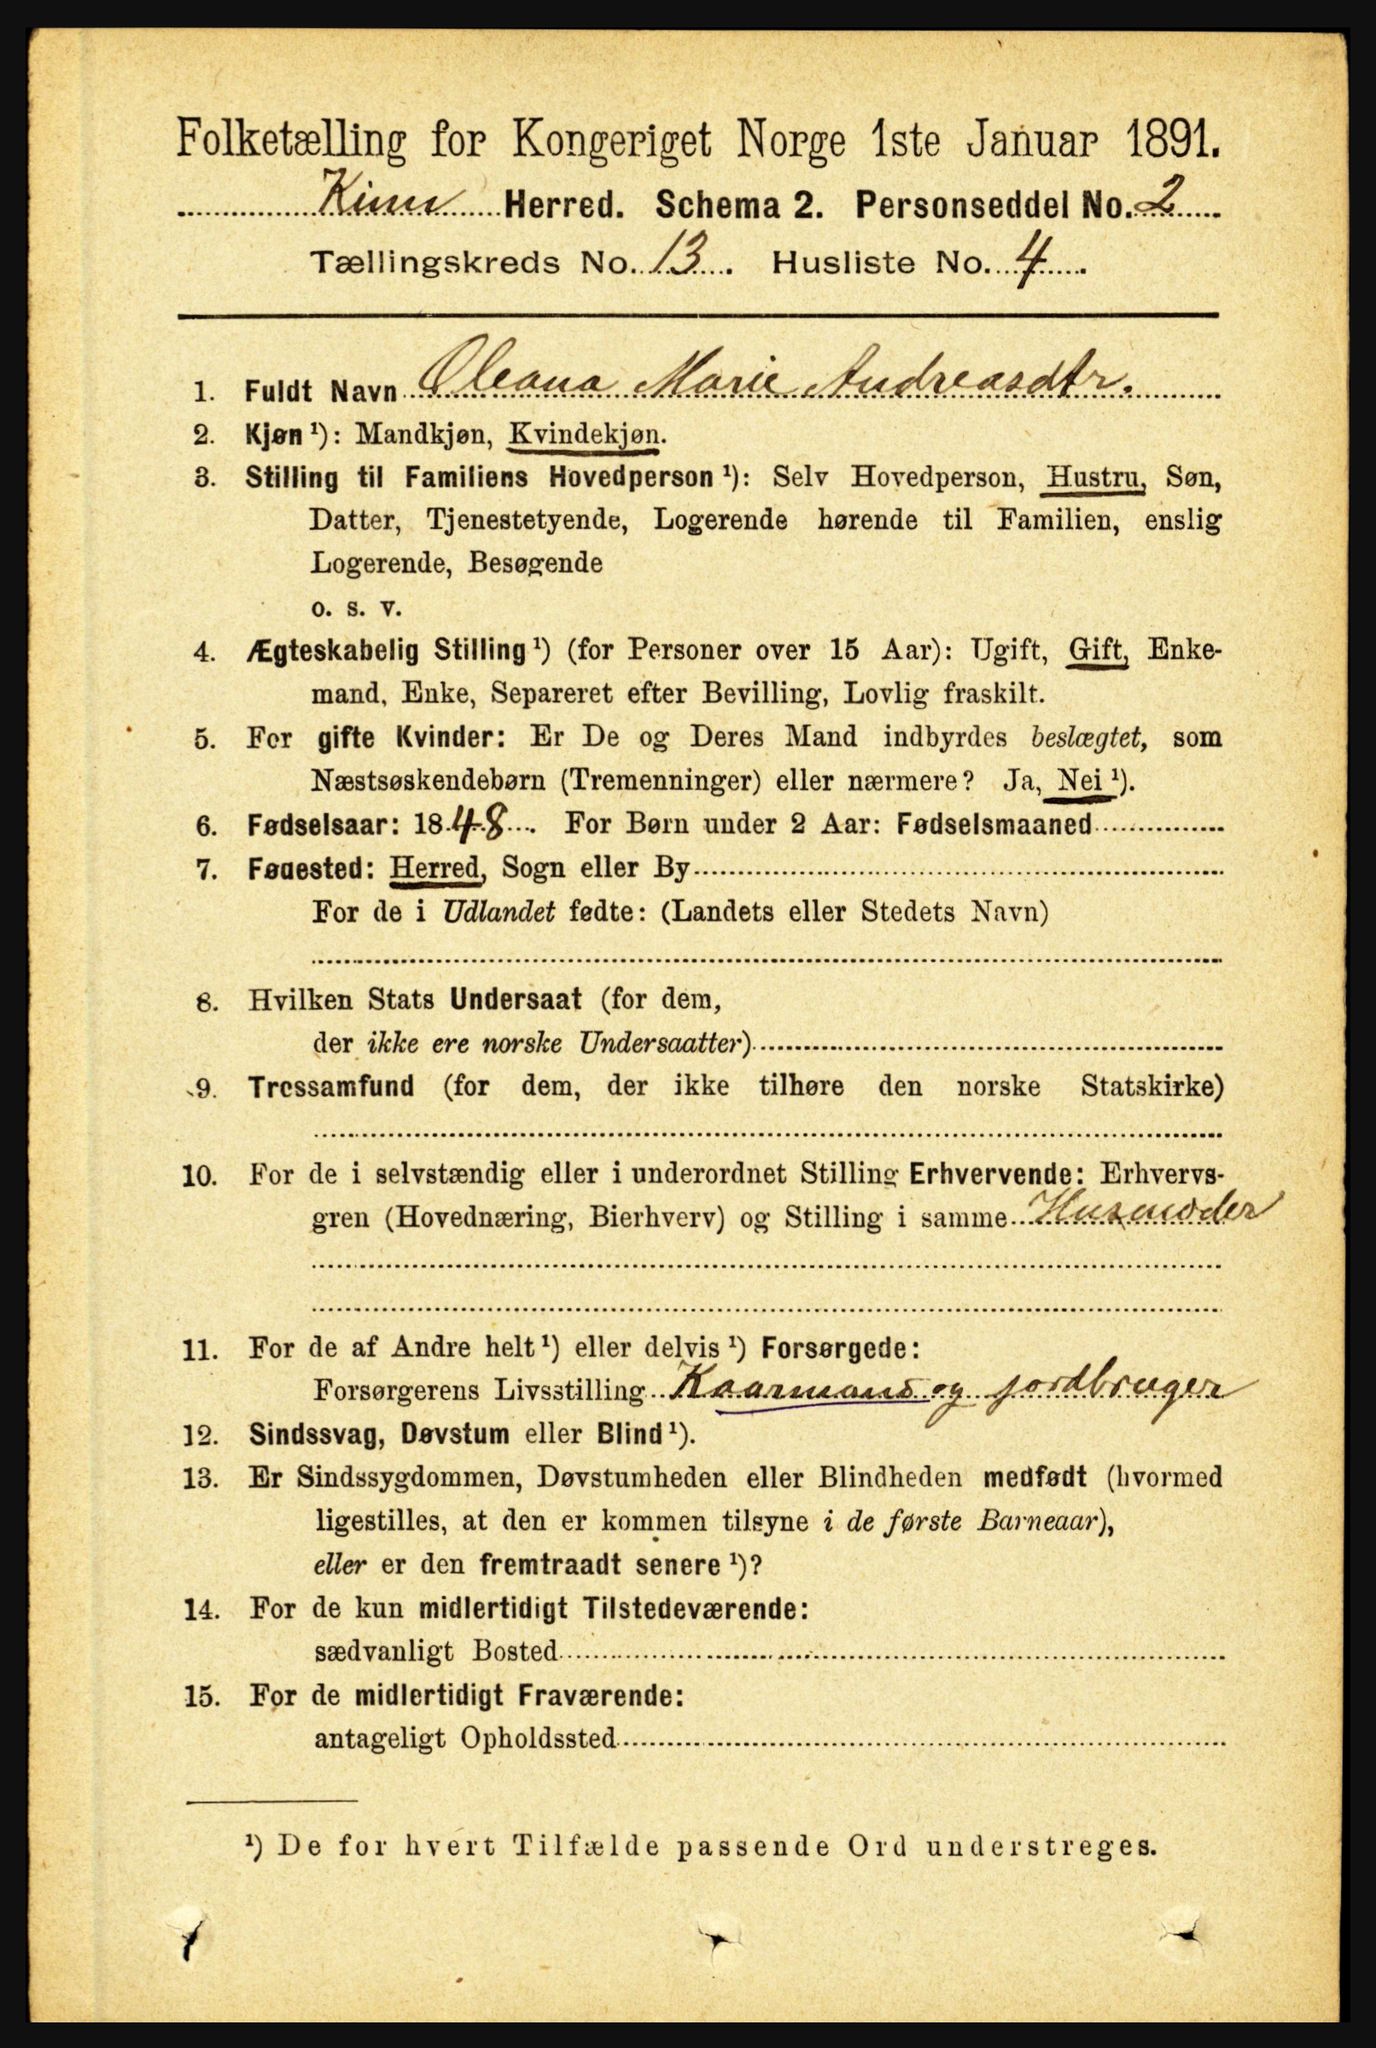 Folketælling for Kongeriget Norge 1ste Januar 1891.
Kinn Herred. Schema 2. Personseddel No. 2
Tællingskreds No. 13. Husliste No. 4
1. Fuldt Navn Oleana Marie Andreasdtr.
2. Kjøn ¹): Mandkjøn, Kvindekjøn.
3. Stilling til Familiens Hovedperson ¹): Selv Hovedperson, Hustru, Søn,
Datter, Tjenestetyende, Logerende hørende til Familien, enslig
Logerende, Besøgende
o. s. v.
4. Ægteskabelig Stilling ¹) (for Personer over 15 Aar): Ugift, Gift, Enke-
mand, Enke, Separeret efter Bevilling, Lovlig fraskilt.
5. For gifte Kvinder: Er De og Deres Mand indbyrdes beslægtet, som
Næstsøskendebørn (Tremenninger) eller nærmere? Ja, Nei ¹).
6. Fødselsaar: 1848. For Børn under 2 Aar: Fødselsmaaned
7. Fødested: Herred, Sogn eller By
For de i Udlandet fødte: (Landets eller Stedets Navn)
8. Hvilken Stats Undersaat (for dem,
der ikke ere norske Undersaatter)
9. Trossamfund (for dem, der ikke tilhøre den norske Statskirke)
10. For de i selvstændig eller i underordnet Stilling Erhvervende: Erhvervs-
gren (Hovednæring, Bierhverv) og Stilling i samme Husmoder
11. For de af Andre helt ¹) eller delvis ¹) Forsørgede:
Forsørgerens Livsstilling Kaarmand og jordbruger
12. Sindssvag, Døvstum eller Blind ¹).
13. Er Sindssygdommen, Døvstumheden eller Blindheden medfødt (hvormed
ligestilles, at den er kommen tilsyne i de første Barneaar),
eller er den fremtraadt senere ¹)?
14. For de kun midlertidigt Tilstedeværende:
sædvanligt Bosted
15. For de midlertidigt Fraværende:
antageligt Opholdssted
¹) De for hvert Tilfælde passende Ord understreges.